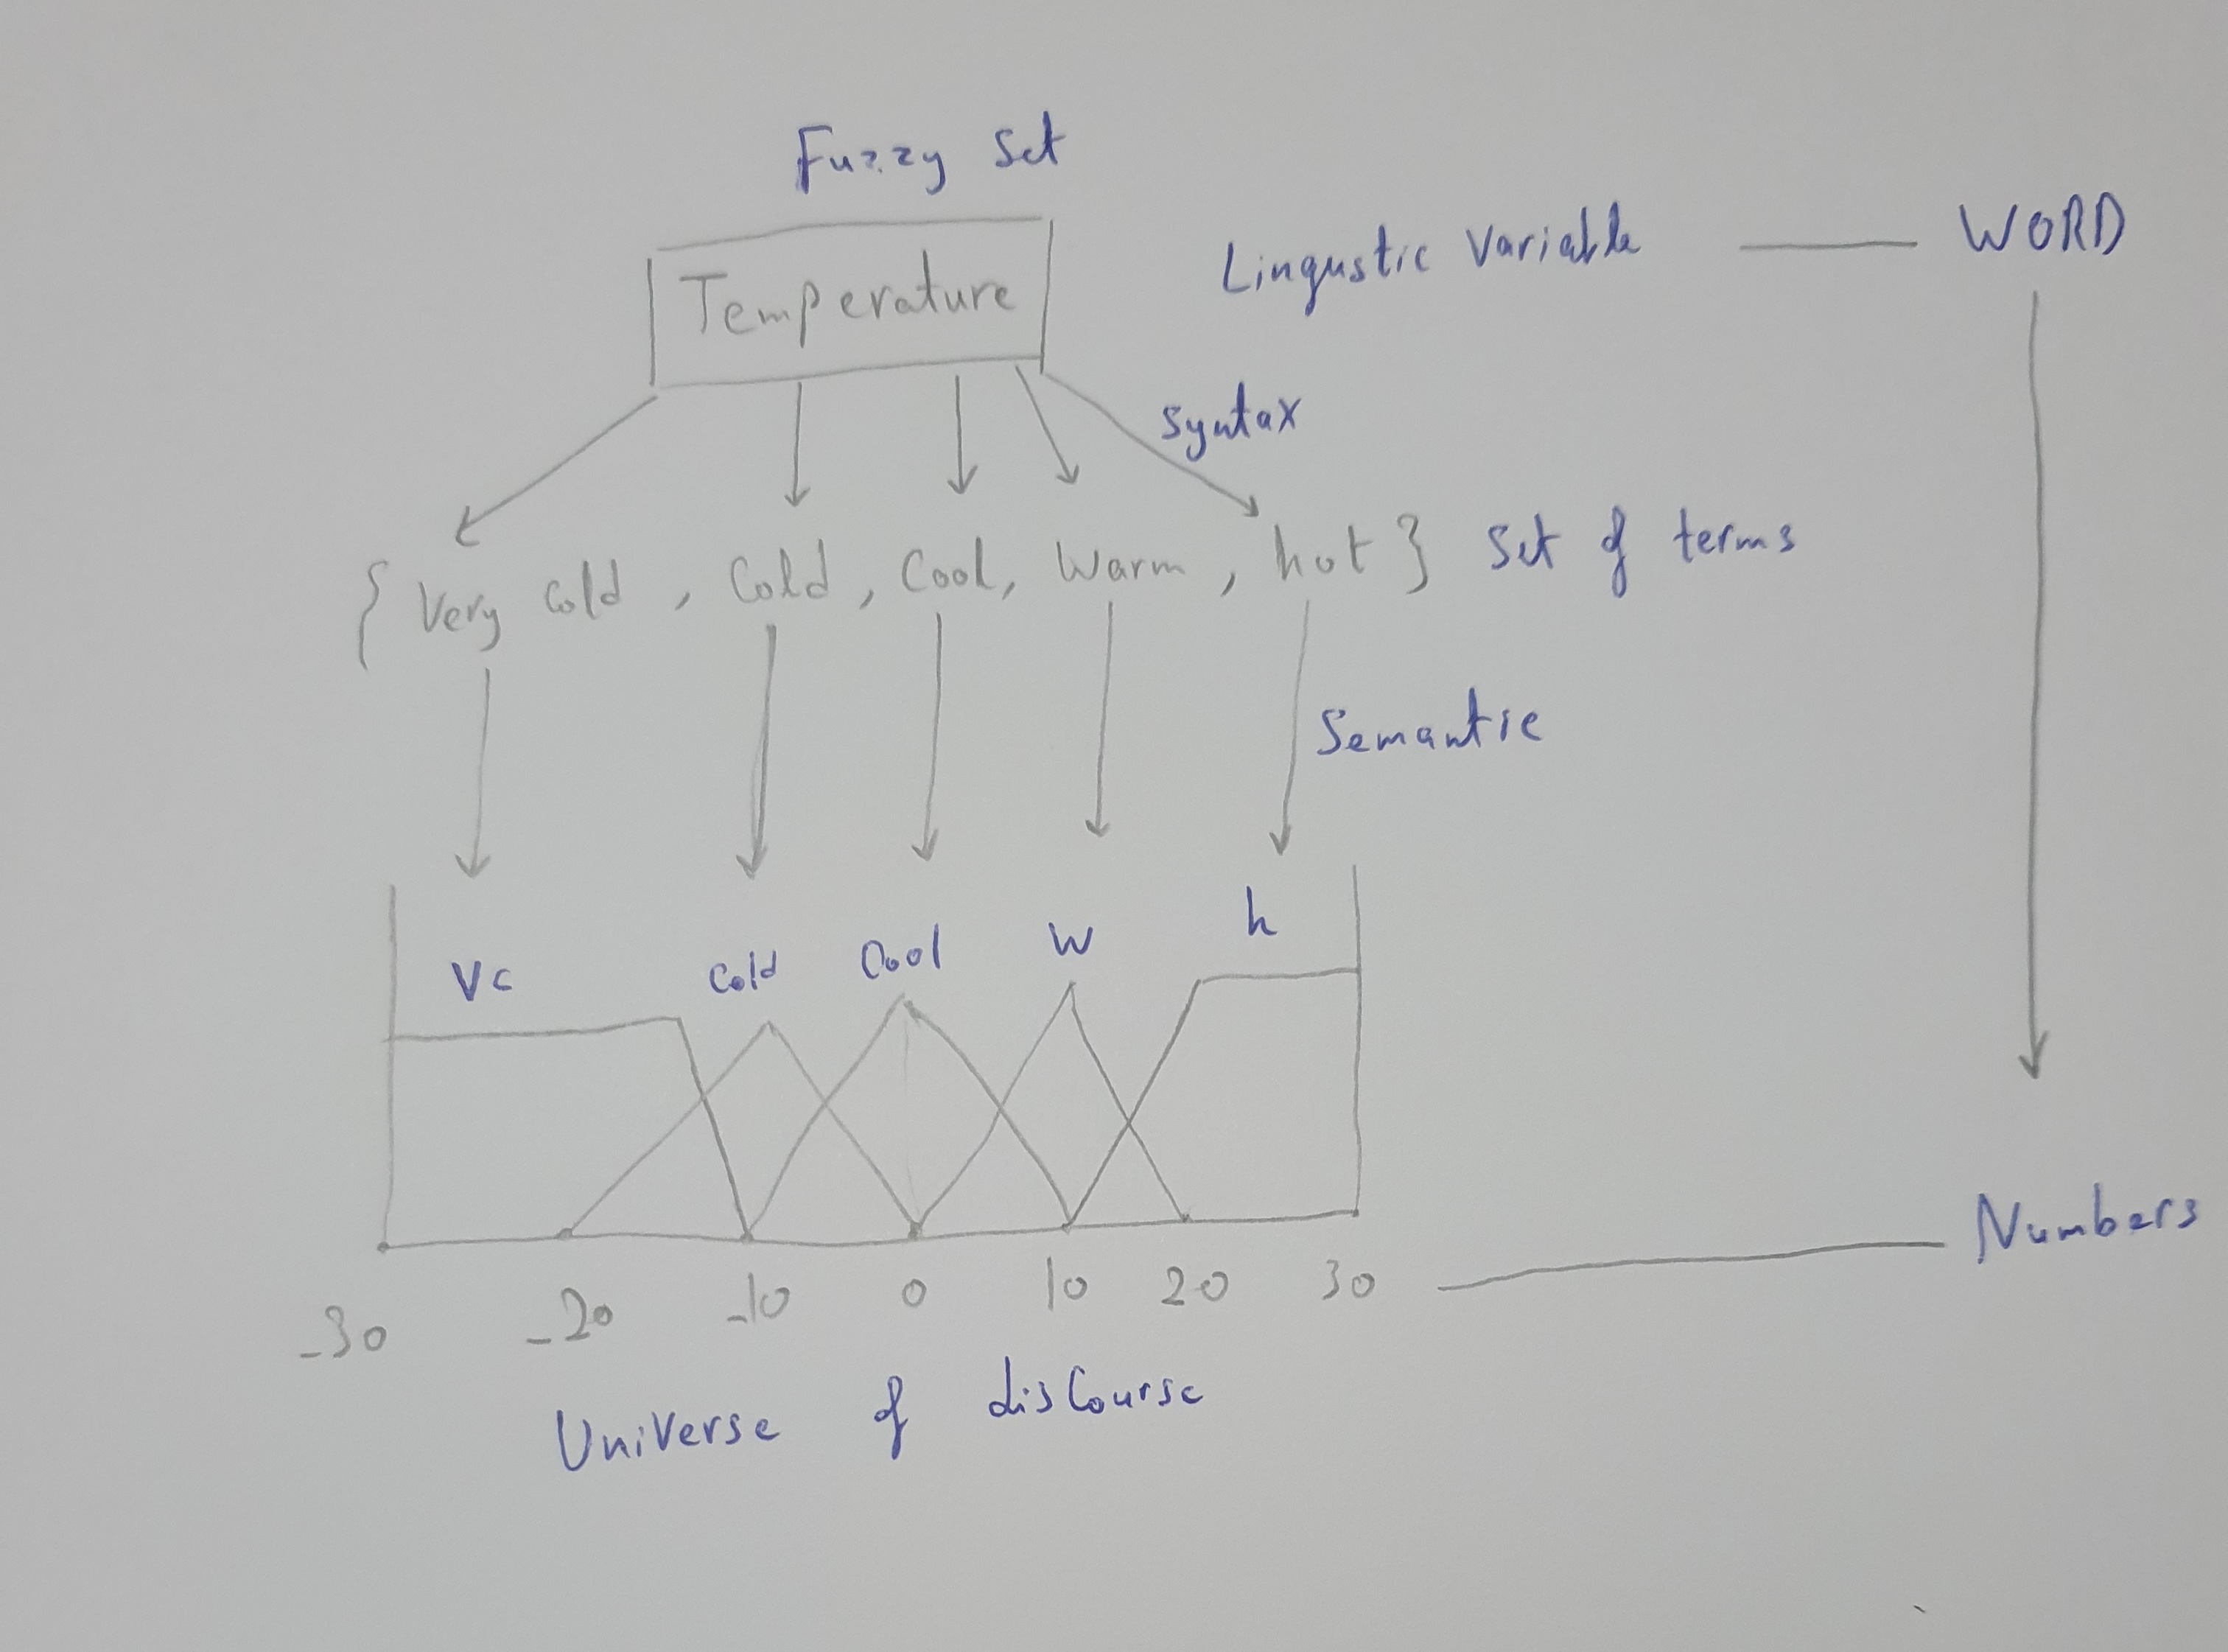 Fuzzy Set
Temperature
Lingustic Variable — WORD
syntax
{ Very Cold , Cold , Cool , Warm , hot } Set of terms
Semantic
Vc Cold Cool W h
-30 -20 -10 0 10 20 30 — Numbers
Universe of disCourse